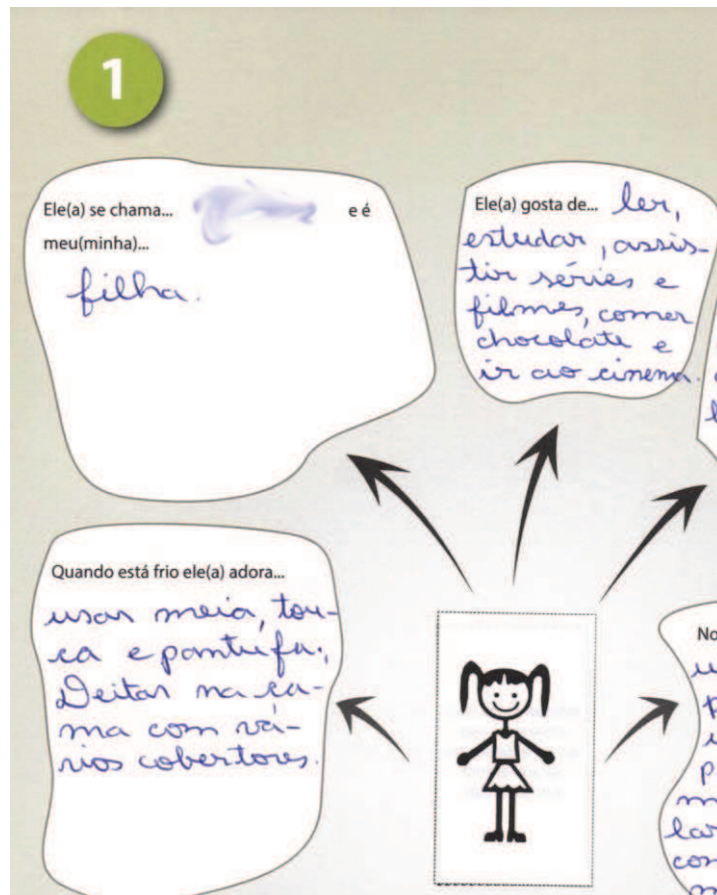 1
Ele(a) se chama... e é
meu(minha)...
filha.
Ele(a) gosta de... ler,
estudar, assis-
tir séries e
filmes, comer
chocolate e
ir ao cinema.
Quando está frio ele(a) adora...
usar meia, tou-
ca e pantufa.
Deitar na ca-
ma com vá-
rios cobertores.
No